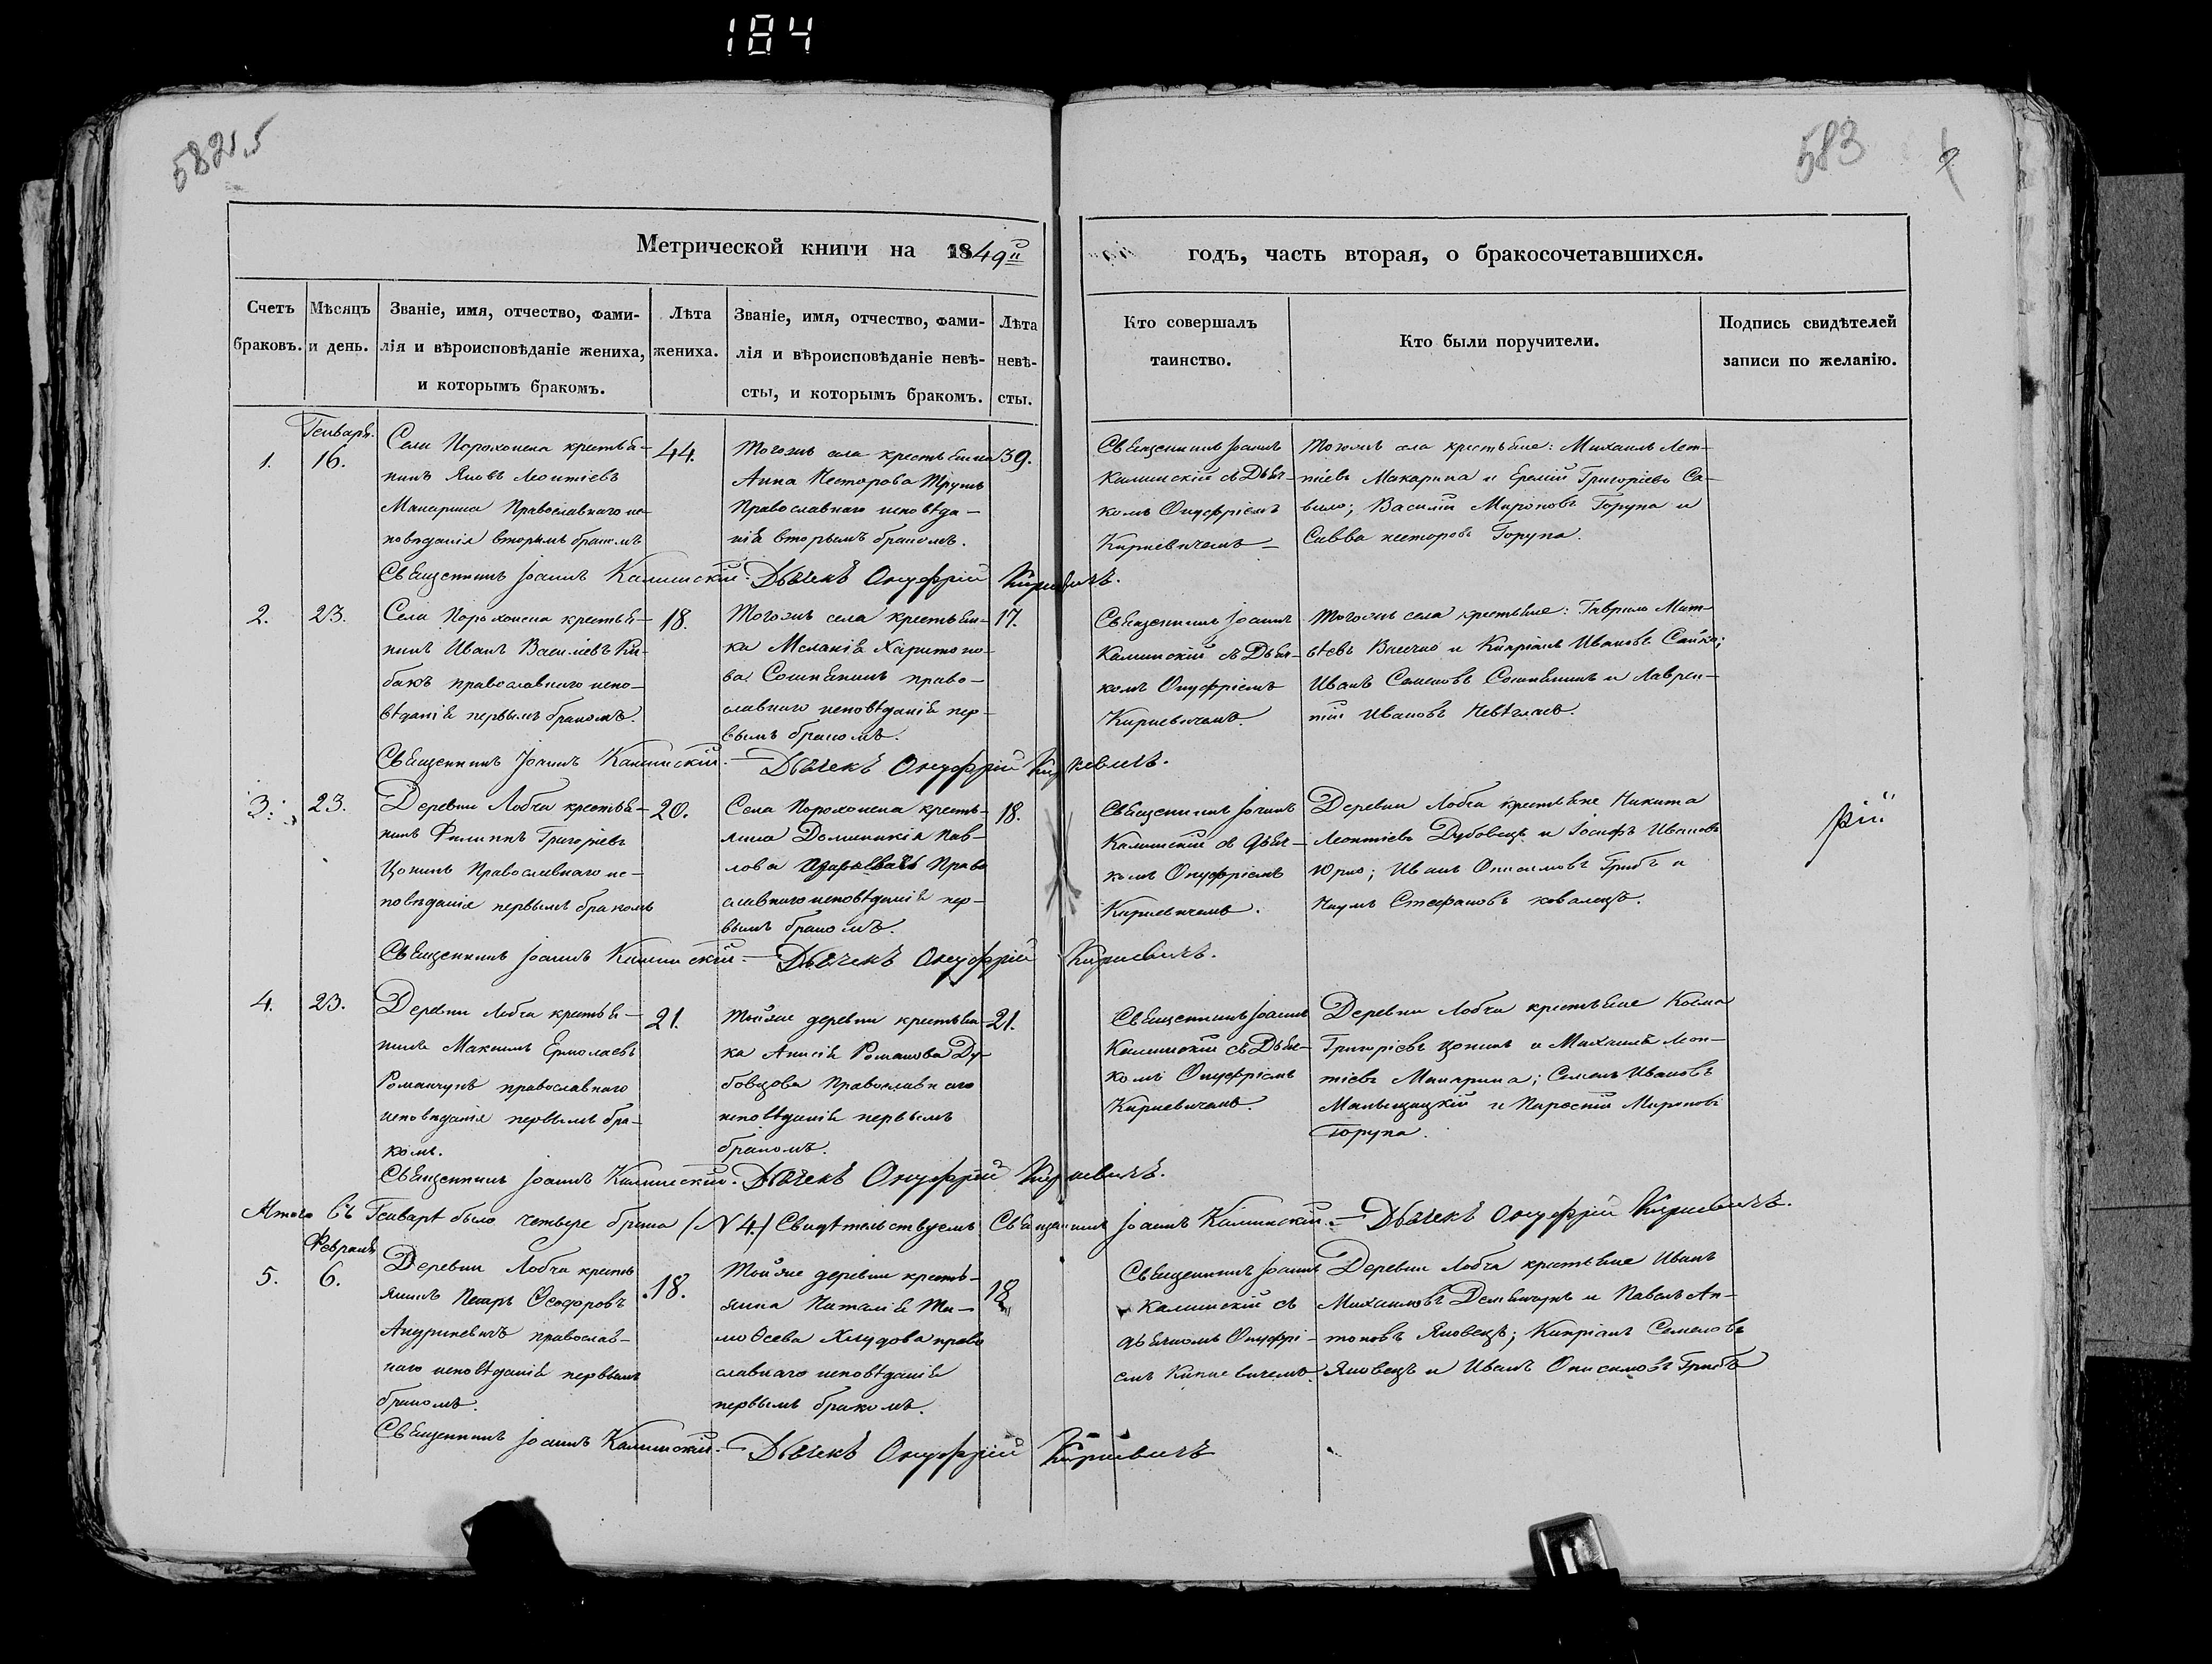 184
582 об
583
Метрической книги на 1849й
годъ, часть вторая, о бракосочетавшихся.
Счетъ браковъ.
Мѣсяцъ и день.
Званіе, имя, отчество, фами-
лія и вѣроисповѣданіе жениха,
и которымъ бракомъ.
Лѣта
жениха.
Званіе, имя, отчество, фами-
лія и вѣроисповѣданіе невѣ-
сты, и которымъ бракомъ.
Лѣта
невѣ-
сты.
Кто совершалъ
таинство.
Кто были поручители.
Подпись свидѣтелей
записи по желанію.
Генваря
1.
16.
Села Порохонска крестья-
нинъ Яковъ Леонтіевъ
Макарина Православнаго ис-
повѣданія вторымъ бракомъ
44.
Тогожъ села крестьянка
Анна Несторова Трушъ
Православнаго исповѣда-
нія вторымъ бракомъ.
39.
Священникъ Іоаннъ
Калинскій съ Дьяч-
комъ Онуфріемъ
Киркевичемъ
Тогожъ села крестьяне: Михаилъ Леон-
тіевъ Макарина и Еремій Григоріевъ Са-
вило; Василій Мироновъ Горупа и
Савва Несторовъ Горупа.
Священникъ Іоаннъ Калинскій. Дьячекъ Онуфрій Киркевичъ.
2.
23.
Села Порохонска крестья-
нинъ Иванъ Василіевъ
бакъ православнаго испо-
вѣданія первымъ бракомъ.
18.
Тогожъ села крестьян-
ка Меланія Харитоно-
ва право-
славнаго исповѣданія пер-
вымъ бракомъ.
17.
Священникъ Іоаннъ
Калинскій съ Дьяч-
комъ Онуфріемъ
Киркевичемъ.
Тогожъ села крестьяне: Гаврило Мат-
вѣевъ и Кипріанъ Ивановъ
Иванъ Семеновъ и Лаврен-
тій Ивановъ
Священникъ Іоаннъ Калинскій. Дьячекъ Онуфрій Киркевичъ.
3.
23.
Деревни Лобча крестья-
нинъ Филиппъ Григоріевъ
Цопикъ Православнаго ис-
повѣданія первымъ бракомъ
20.
Села Порохонска кресть-
янка Домникія Пав-
лова Право
славнаго исповѣданія пер-
вымъ бракомъ.
18.
Священникъ Іоаннъ
Калинскій съ Дьяч-
комъ Онуфріемъ
Киркевичемъ.
Деревни Лобча крестьяне Никита
Леонтіевъ Дубовецъ и Іосифъ Ивановъ
Юрко; Иванъ Онисимовъ Грибъ и
Наумъ Стефановъ Ковалецъ.
Священникъ Іоаннъ Калинскій. Дьячекъ Онуфрій Киркевичъ.
4.
23.
Деревни Лобча крестья-
нинъ Максимъ Ермолаевъ
Романчукъ православнаго
исповѣданія первымъ бра-
комъ.
21.
Тойже деревни крестьян-
ка Анисія Романова Ду-
бовцова Православнаго
исповѣданія первымъ
бракомъ.
21.
Священникъ Іоаннъ
Калинскій съ Дьяч-
комъ Онуфріемъ
Киркевичемъ.
Деревни Лобча крестьяне Косма
Григоріевъ Цопикъ и Михаилъ Леон-
тіевъ Макарина; Семенъ Ивановъ
и Мироновъ
Горупа.
Священникъ Іоаннъ Калинскій. Дьячекъ Онуфрій Киркевичъ.
Итого въ Генварѣ было четыре брака (N 4.) Свидѣтельствуемъ Священникъ Іоаннъ Калинскій. Дьячекъ Онуфрій Киркевичъ.
Февраля
5.
6.
Деревни Лобча кресть
янинъ Петръ Ѳеодоровъ
православ-
наго исповѣданія первымъ
бракомъ.
18.
Тойже деревни кресть-
янка Наталія Ти-
моѳеева Хлудова право
славнаго исповѣданія
первымъ бракомъ.
18
Священникъ Іоаннъ
Калинскій съ
дьячкомъ Онуфрі-
емъ Киркевичемъ.
Деревни Лобча крестьяне Иванъ
Михаиловъ Демянчукъ и Павелъ Ан-
тоновъ Яковецъ; Кипріанъ Семеновъ
Яковецъ и Иванъ Онисимовъ Грибъ
Священникъ Іоаннъ Калинскій. Дьячекъ Онуфрій Киркевичъ